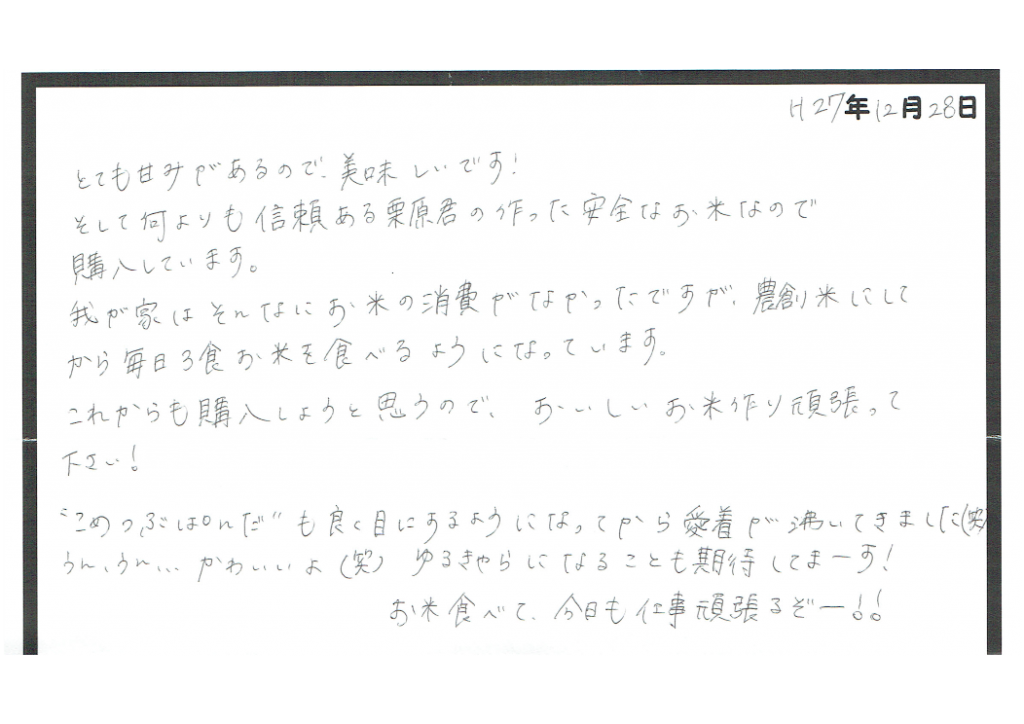 H27年12月28日
とても甘みがあるので、美味しいです!
そして何よりも信頼ある栗原君の作った安全なお米なので
購入しています。
我が家はそんなにお米の消費がなかったですが、農創米にして
から毎日3食お米を食べるようになっています。
これからも購入しようと思うので、おいしいお米作り頑張って
下さい!
"こめつぶぱんだ"も良く目にするようになってから愛着が沸いてきました(笑)
うん、うん... かわいいよ(笑) ゆるきゃらになることも期待してまーす!
お米食べて、今日も仕事頑張るぞー!!